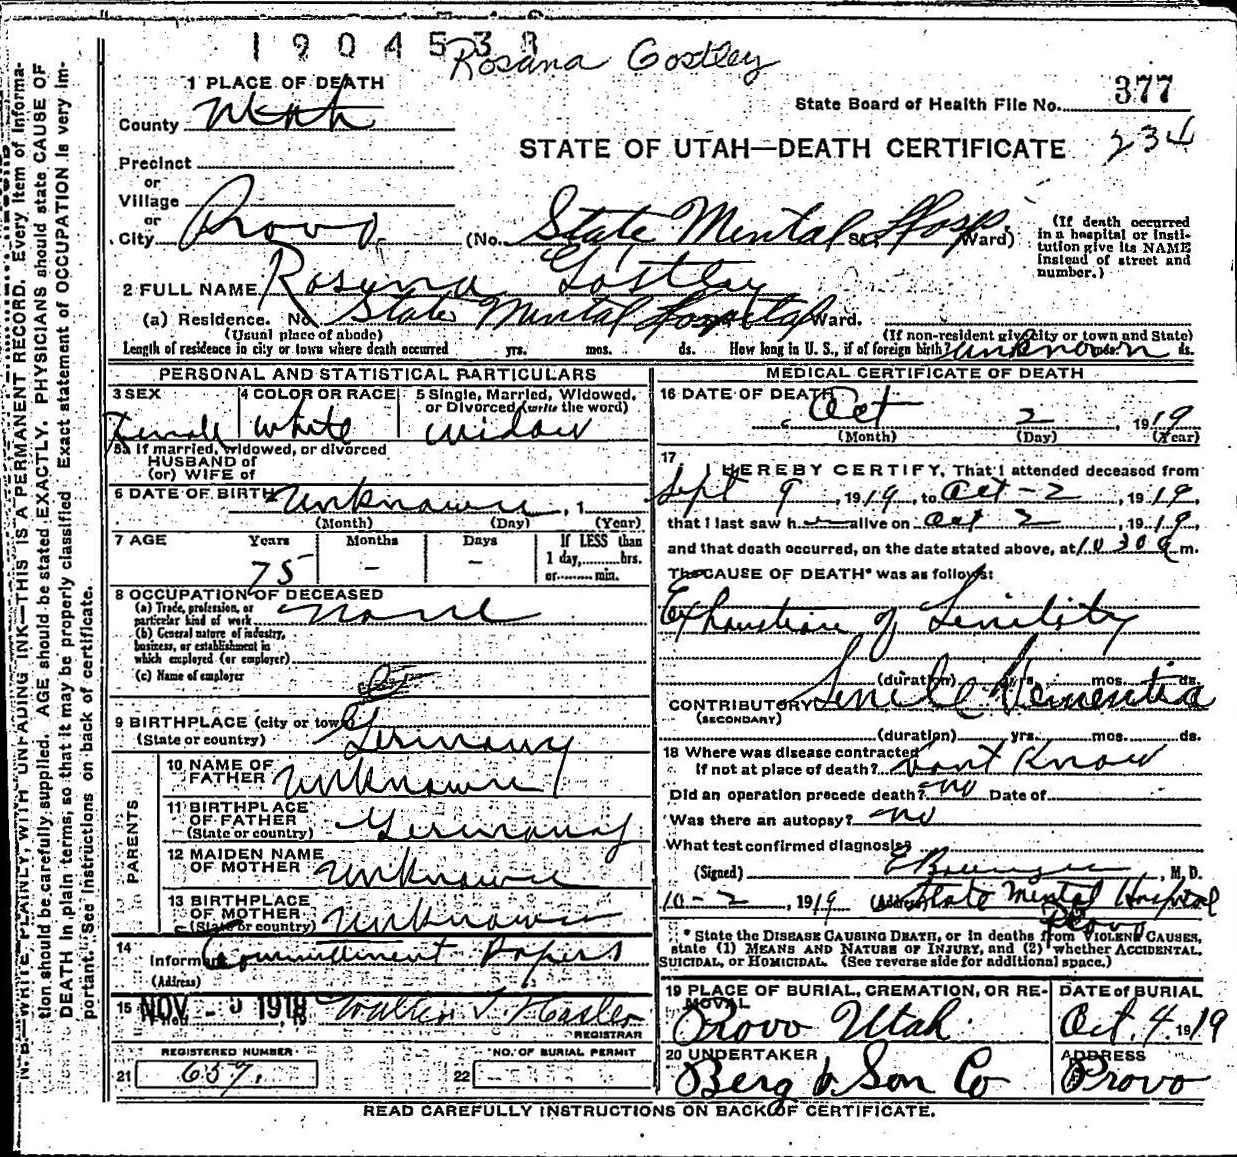 1904538
Rosana Gostley
1 PLACE OF DEATH
State Board of Health File No. 377
County Utah
234
STATE OF UTAH—DEATH CERTIFICATE
Precinct
or
Village
or
City Provo (No. State Mental Hosp. St.; Ward)
(If death occurred
in a hospital or insti-
tution give its NAME
instead of street and
number.)
2 FULL NAME Rosana Gostley
(a) Residence. No. State Mental Hospital Ward.
(Usual place of abode) (If non-resident give city or town and State)
Length of residence in city or town where death occurred yrs. mos. ds. How long in U. S., if of foreign birth? unknown ds.
PERSONAL AND STATISTICAL PARTICULARS
3 SEX
Female
4 COLOR OR RACE
White
5 Single, Married, Widowed,
or Divorced (write the word)
Widow
5a If married, widowed, or divorced
HUSBAND of
(or) WIFE of
6 DATE OF BIRTH Unknown, 1
(Month) (Day) (Year)
7 AGE Years Months Days If LESS than
1 day,........hrs.
or........min.
75 – –
8 OCCUPATION OF DECEASED
(a) Trade, profession, or
particular kind of work None
(b) General nature of industry,
business, or establishment in
which employed (or employer)
(c) Name of employer
9 BIRTHPLACE (city or town)
(State or country) Germany
PARENTS
10 NAME OF
FATHER Unknown
11 BIRTHPLACE
OF FATHER
(State or country) Germany
12 MAIDEN NAME
OF MOTHER Unknown
13 BIRTHPLACE
OF MOTHER
(State or country) Unknown
14
Informant Commitment Papers
(Address)
15 Filed NOV - 5 1919, 19 Walter T. Hasler
REGISTRAR
REGISTERED NUMBER
21 657.
NO. OF BURIAL PERMIT
22
MEDICAL CERTIFICATE OF DEATH
16 DATE OF DEATH
Oct 2, 1919
(Month) (Day) (Year)
17
I HEREBY CERTIFY, That I attended deceased from
Sept 9, 1919, to Oct - 2, 1919,
that I last saw h er alive on Oct 2, 1919,
and that death occurred, on the date stated above, at 10 30 a m.
The CAUSE OF DEATH* was as follows:
Exhaustion of Senility
(duration) yrs. mos. ds.
CONTRIBUTORY Senile Dementia
(SECONDARY)
(duration) yrs. mos. ds.
18 Where was disease contracted
if not at place of death? Dont Know
Did an operation precede death? no Date of
Was there an autopsy? no
What test confirmed diagnosis?
(Signed), M. D.
10-2, 1919 (Address) State Mental Hospital
Provo
* State the DISEASE CAUSING DEATH, or in deaths from VIOLENT CAUSES,
state (1) MEANS AND NATURE OF INJURY, and (2) whether ACCIDENTAL,
SUICIDAL, or HOMICIDAL. (See reverse side for additional space.)
19 PLACE OF BURIAL, CREMATION, OR RE-
MOVAL
Provo Utah.
DATE of BURIAL
Oct. 4 1919
20 UNDERTAKER
Berg & Son Co
ADDRESS
Provo
READ CAREFULLY INSTRUCTIONS ON BACK OF CERTIFICATE.
N. B.—WRITE PLAINLY, WITH UNFADING INK—THIS IS A PERMANENT RECORD. Every item of informa-
tion should be carefully supplied. AGE should be stated EXACTLY. PHYSICIANS should state CAUSE OF
DEATH in plain terms, so that it may be properly classified. Exact statement of OCCUPATION is very im-
portant. See instructions on back of certificate.